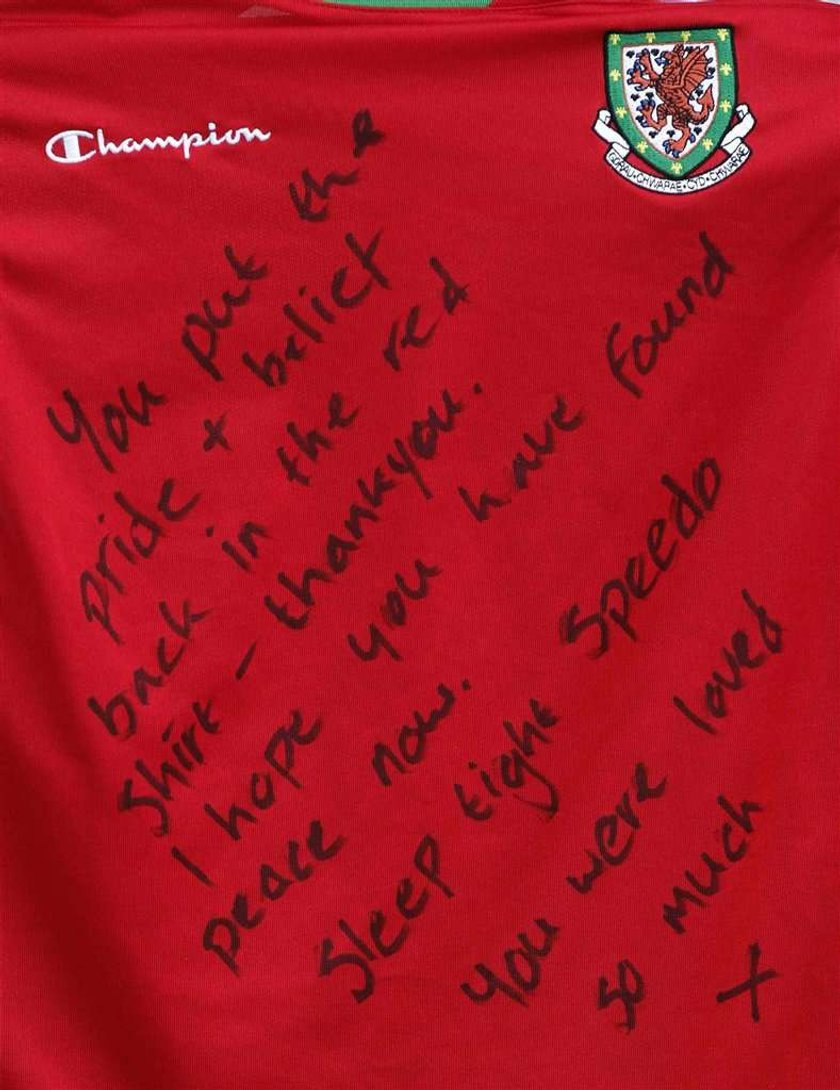 Champion
GORAU·CHWARAE·CYD·CHWARAE
You put the
pride + belief
back in the red
shirt - thankyou.
I hope you have found
peace now.
Sleep tight Speedo
You were loved
so much
x